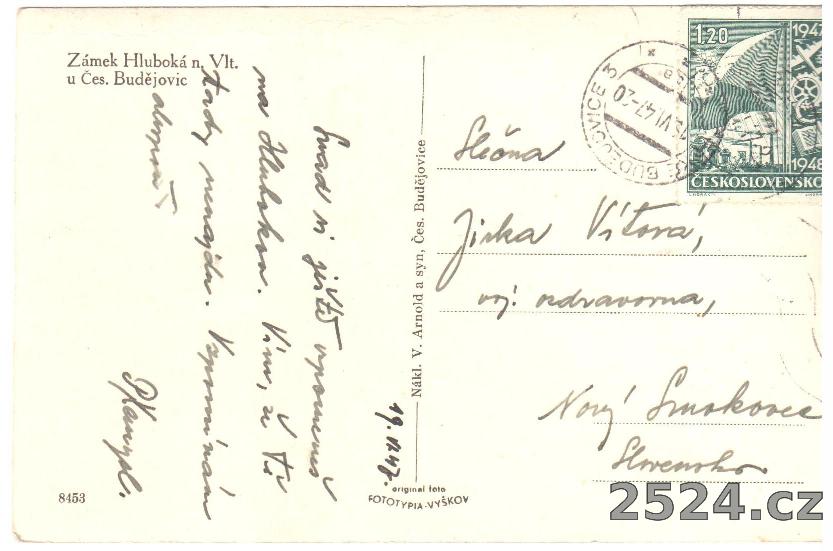 Zámek Hluboká n. Vlt.
u Čes. Budějovic
Snad si ještě vpomeneš
na Hlubokou. Vím, že Tě
tady nenajdu. Vzpomínám
19.VI.47.
Nákl. V. Arnold a syn, Čes. Budějovice
8453
original foto
FOTOTYPIA-VYŠKOV
1·20
1947
1948
ČESKOSLOVENSKO
BUDĚJOVICE 3
VI.47-20
Slečna
Jirka Vítová,
voj. ozdravovna,
Nový Smokovec
Slovensko.
2524.cz